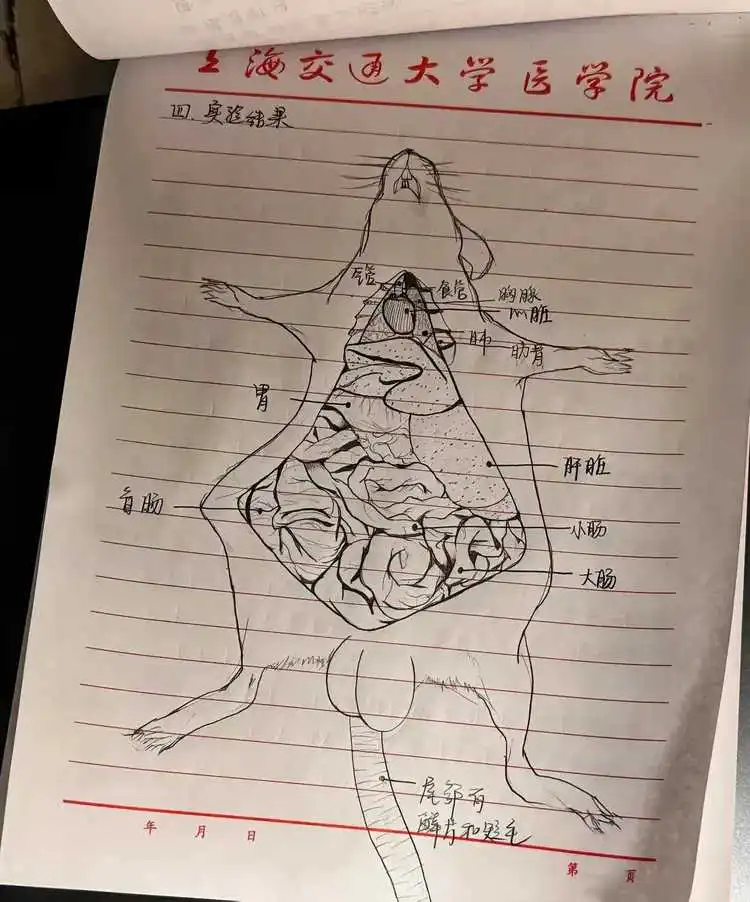 上海交通大学医学院
四.实验结果
气管
食管
胸腺
心脏
肺
肋骨
胃
肝脏
盲肠
小肠
大肠
尾部有
鳞片和短毛
年 月 日
第 页